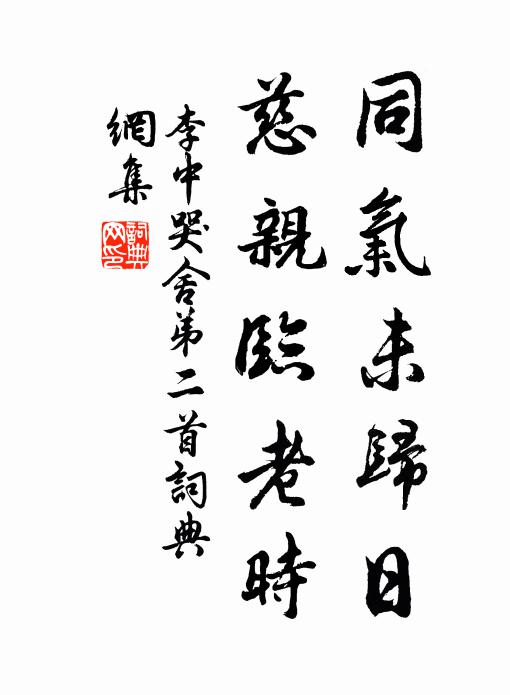 同氣未歸日
慈親臨老時
李中哭舍弟二首詞典
網集
詞典网印